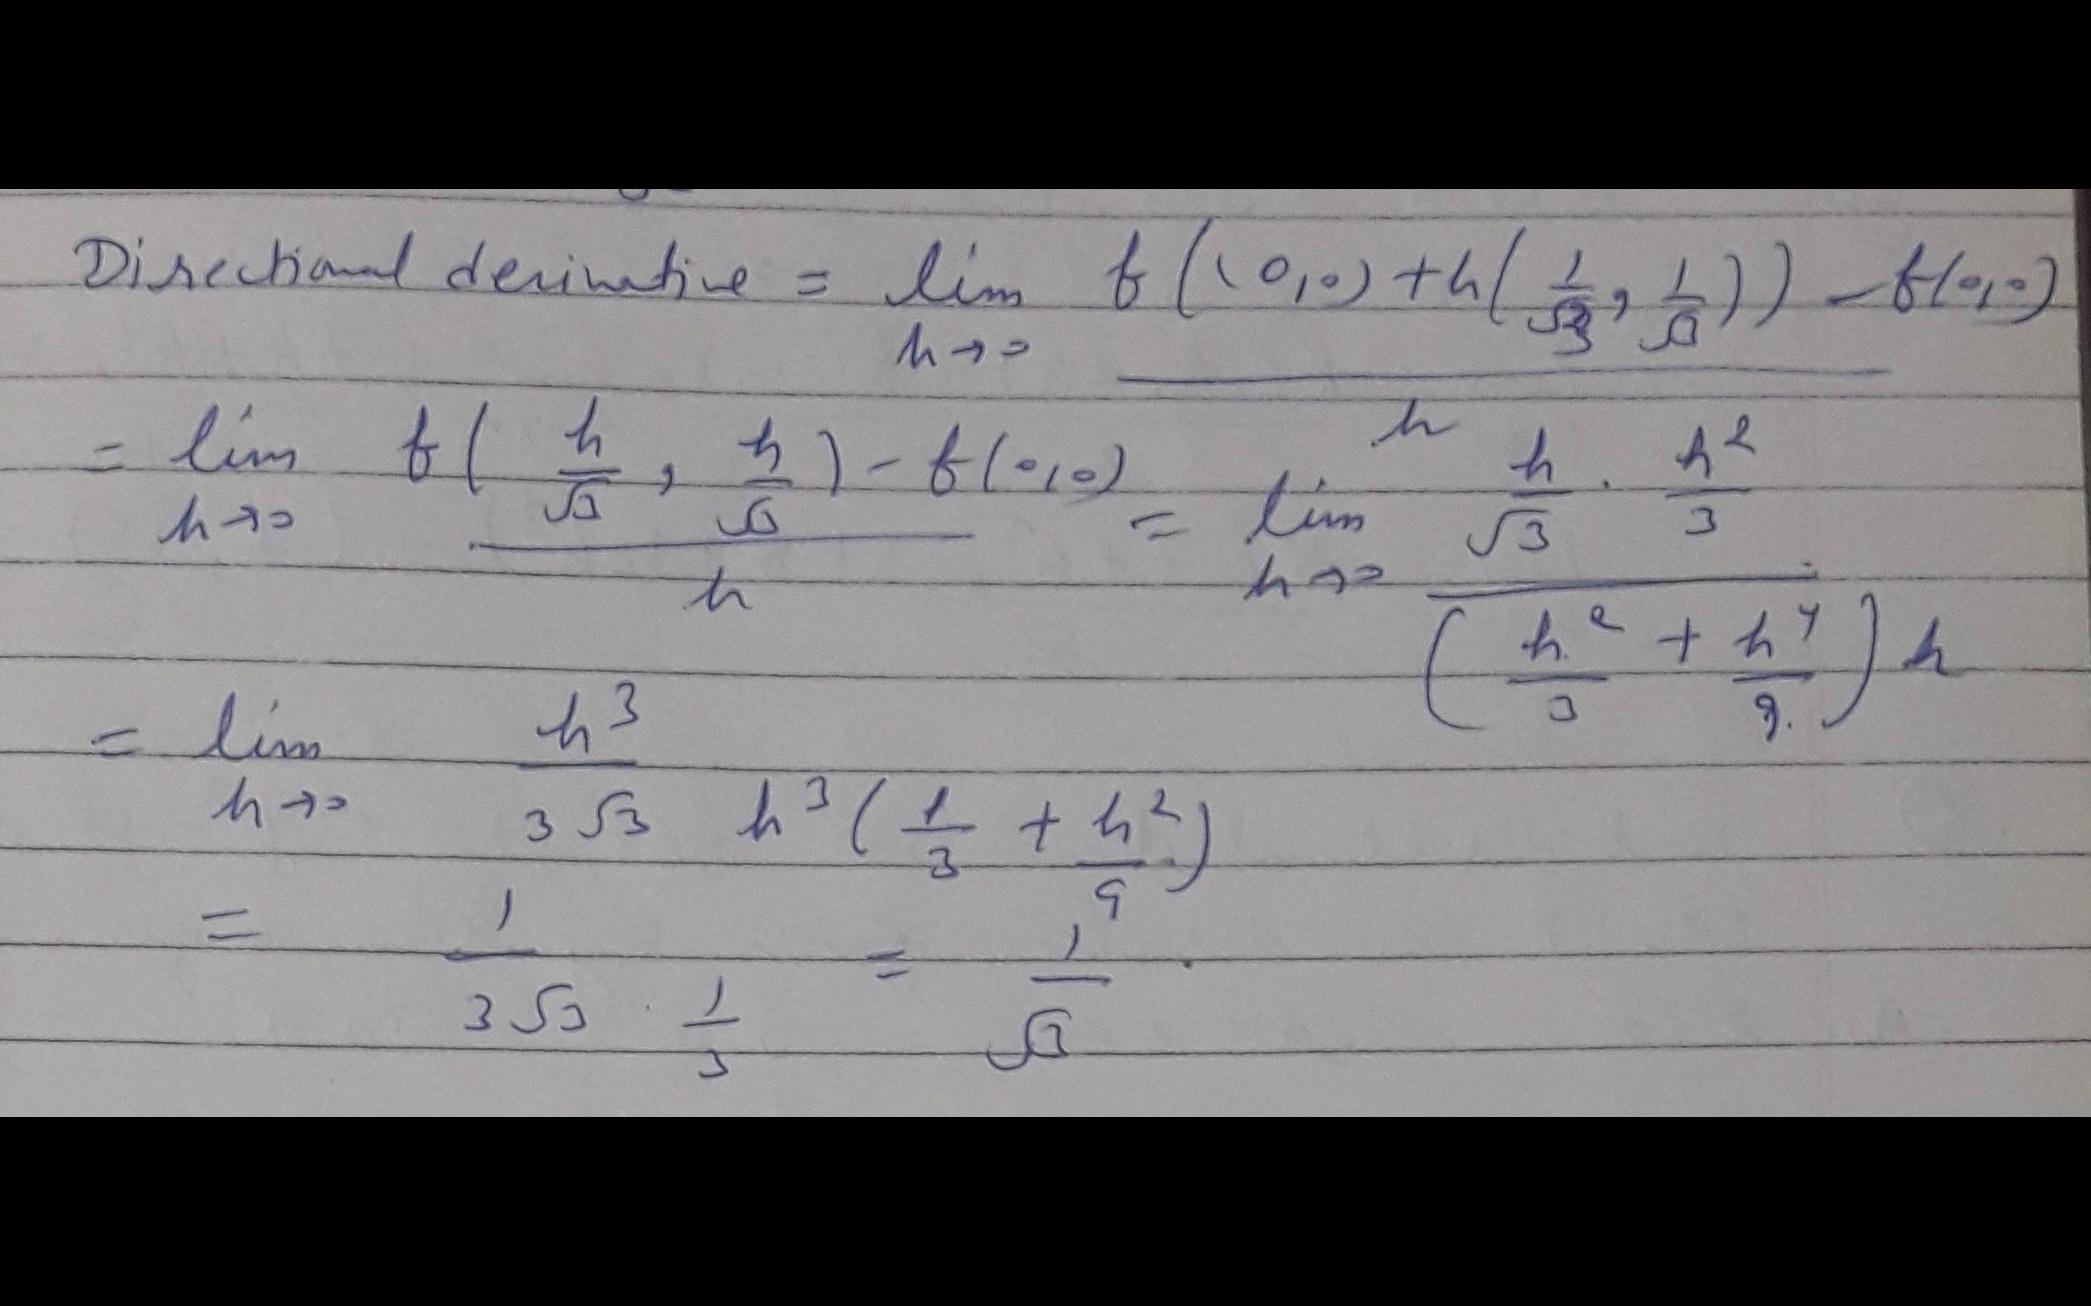 Directional derivative = lim h→0 f((0,0)+h(1/√3, 1/√3)) - f(0,0) / h
= lim h→0 f(h/√3, h/√3) - f(0,0) / h = lim h→0 h/√3 . h²/3 / (h²/3 + h⁴/9) h
= lim h→0 h³ / 3√3 h³(1/3 + h²/9)
= 1 / 3√3 . 1/3 = 1/√3 .